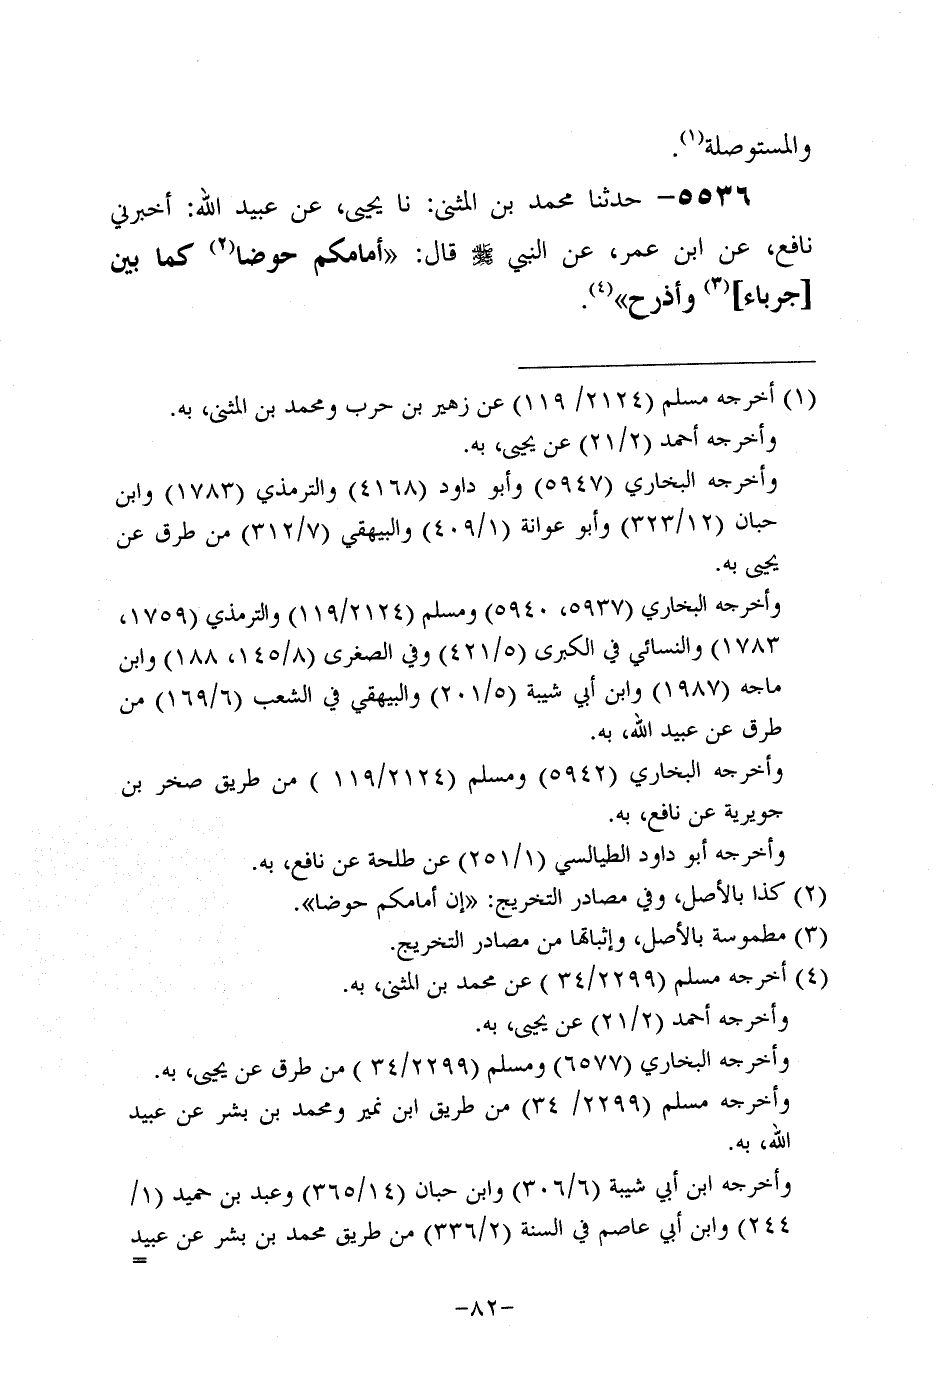 والمستوصلة(١).
٥٥٣٦- حدثنا محمد بن المثنى: نا يحيى، عن عبيد الله: أخبرني
نافع، عن ابن عمر، عن النبي ﷺ قال: «أمامكم حوضا(٢) كما بين
[جرباء](٣) وأذرح»(٤).
(١) أخرجه مسلم (٢١٢٤/ ١١٩) عن زهير بن حرب ومحمد بن المثنى، به.
وأخرجه أحمد (٢١/٢) عن يحيى، به.
وأخرجه البخاري (٥٩٤٧) وأبو داود (٤١٦٨) والترمذي (١٧٨٣) وابن
حبان (٣٢٣/١٢) وأبو عوانة (٤٠٩/١) والبيهقي (٣١٢/٧) من طرق عن
يحيى به.
وأخرجه البخاري (٥٩٣٧، ٥٩٤٠) ومسلم (١١٩/٢١٢٤) والترمذي (١٧٥٩،
١٧٨٣) والنسائي في الكبرى (٤٢١/٥) وفي الصغرى (١٤٥/٨، ١٨٨) وابن
ماجه (١٩٨٧) وابن أبي شيبة (٢٠١/٥) والبيهقي في الشعب (١٦٩/٦) من
طرق عن عبيد الله، به.
وأخرجه البخاري (٥٩٤٢) ومسلم (١١٩/٢١٢٤ ) من طريق صخر بن
جويرية عن نافع، به.
وأخرجه أبو داود الطيالسي (٢٥١/١) عن طلحة عن نافع، به.
(٢) كذا بالأصل، وفي مصادر التخريج: «إن أمامكم حوضا».
(٣) مطموسة بالأصل، وإثباتها من مصادر التخريج.
(٤) أخرجه مسلم (٣٤/٢٢٩٩ ) عن محمد بن المثنى، به.
وأخرجه أحمد (٢١/٢) عن يحيى، به.
وأخرجه البخاري (٦٥٧٧) ومسلم (٣٤/٢٢٩٩ ) من طرق عن يحيى، به.
وأخرجه مسلم (٢٢٩٩/ ٣٤) من طريق ابن نمير ومحمد بن بشر عن عبيد
الله، به.
وأخرجه ابن أبي شيبة (٣٠٦/٦) وابن حبان (٣٦٥/١٤) وعبد بن حميد (١/
٢٤٤) وابن أبي عاصم في السنة (٣٣٦/٢) من طريق محمد بن بشر عن عبيد
=
-٨٢-